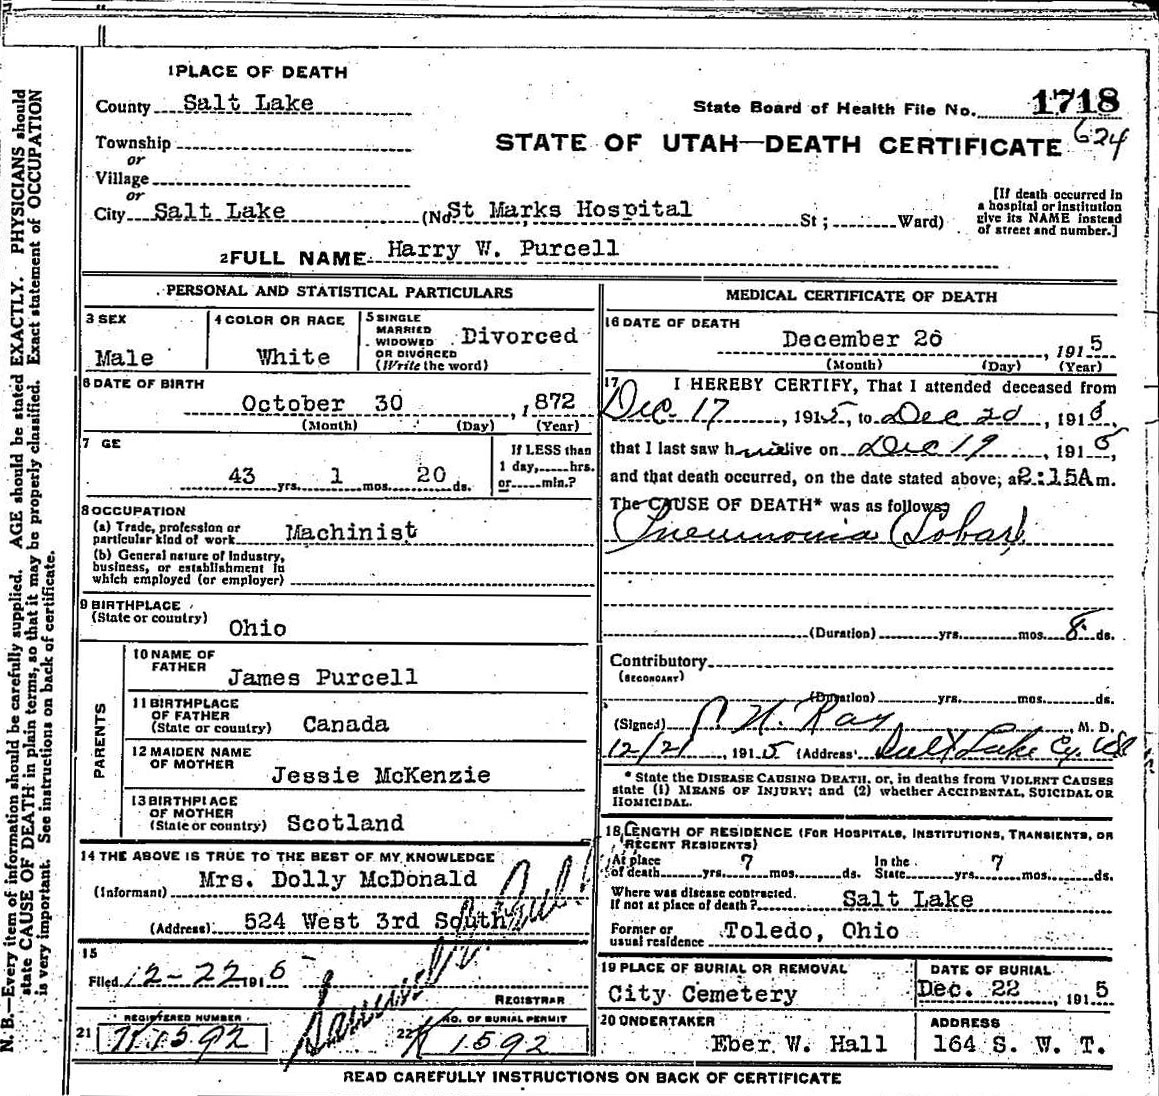 1 PLACE OF DEATH
County Salt Lake
State Board of Health File No. 1718
624
Township
or
Village
or
STATE OF UTAH—DEATH CERTIFICATE
City Salt Lake (No St Marks Hospital St; Ward)
[If death occurred in
a hospital or institution
give its NAME instead
of street and number.]
2 FULL NAME Harry W. Purcell
PERSONAL AND STATISTICAL PARTICULARS
3 SEX
Male
4 COLOR OR RACE
White
5 SINGLE
MARRIED
WIDOWED
OR DIVORCED
(Write the word)
Divorced
6 DATE OF BIRTH
October 30, 1872
(Month) (Day) (Year)
7 GE
43 yrs. 1 mos. 20 ds.
If LESS than
1 day, hrs.
or min.?
8 OCCUPATION
(a) Trade, profession or
particular kind of work Machinist
(b) General nature of Industry,
business, or establishment in
which employed (or employer)
9 BIRTHPLACE
(State or country) Ohio
PARENTS
10 NAME OF
FATHER James Purcell
11 BIRTHPLACE
OF FATHER
(State or country) Canada
12 MAIDEN NAME
OF MOTHER Jessie McKenzie
13 BIRTHPLACE
OF MOTHER
(State or country) Scotland
14 THE ABOVE IS TRUE TO THE BEST OF MY KNOWLEDGE
(Informant) Mrs. Dolly McDonald
(Address) 524 West 3rd South
15
Filed 12-22 1915
REGISTRAR
REGISTERED NUMBER
21 K1592
NO. OF BURIAL PERMIT
22 K 1592
MEDICAL CERTIFICATE OF DEATH
16 DATE OF DEATH
December 20, 1915
(Month) (Day) (Year)
17 I HEREBY CERTIFY, That I attended deceased from
Dec. 17, 1915, to Dec 20, 1915,
that I last saw him alive on Dec 19, 1915,
and that death occurred, on the date stated above, a 2:15A m.
The CAUSE OF DEATH* was as follows:
Pneumonia (Lobar)
(Duration) yrs. mos. 8 ds.
Contributory
(SECONDARY)
(Duration) yrs. mos. ds.
(Signed) H. Ray, M. D.
12/21, 1915 (Address) Salt Lake Cy. Ut
* State the DISEASE CAUSING DEATH, or, in deaths from VIOLENT CAUSES
state (1) MEANS OF INJURY; and (2) whether ACCIDENTAL, SUICIDAL OR
HOMICIDAL.
18 LENGTH OF RESIDENCE (FOR HOSPITALS, INSTITUTIONS, TRANSIENTS, OR
RECENT RESIDENTS)
At place
of death yrs. 7 mos. ds. In the
State yrs. 7 mos. ds.
Where was disease contracted.
If not at place of death? Salt Lake
Former or
usual residence Toledo, Ohio
19 PLACE OF BURIAL OR REMOVAL
City Cemetery
DATE OF BURIAL
Dec. 22, 1915
20 UNDERTAKER
Eber W. Hall
ADDRESS
164 S. W. T.
READ CAREFULLY INSTRUCTIONS ON BACK OF CERTIFICATE
N. B.—Every item of information should be carefully supplied. AGE should be stated EXACTLY. PHYSICIANS should
state CAUSE OF DEATH in plain terms, so that it may be properly classified. Exact statement of OCCUPATION
is very important. See instructions on back of certificate.